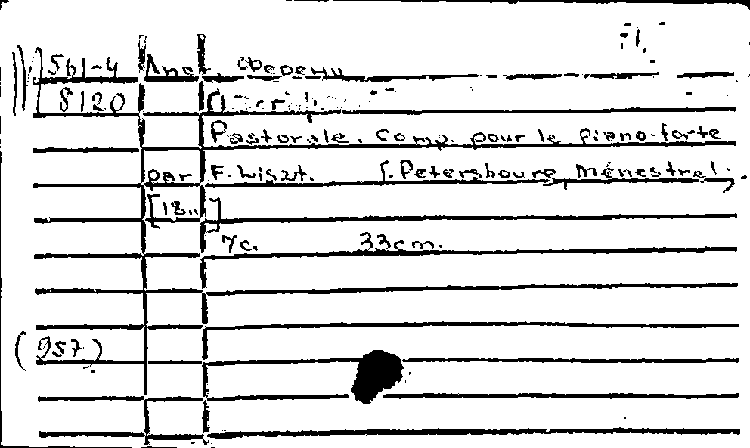 Ф1.
561-4 Лист, Ференц
8120
Pastorale. Comp. pour le piano-forte
par F. Liszt. S. Petersbourg, Ménestrel.
[18..]
7с. 33cm.
(957)